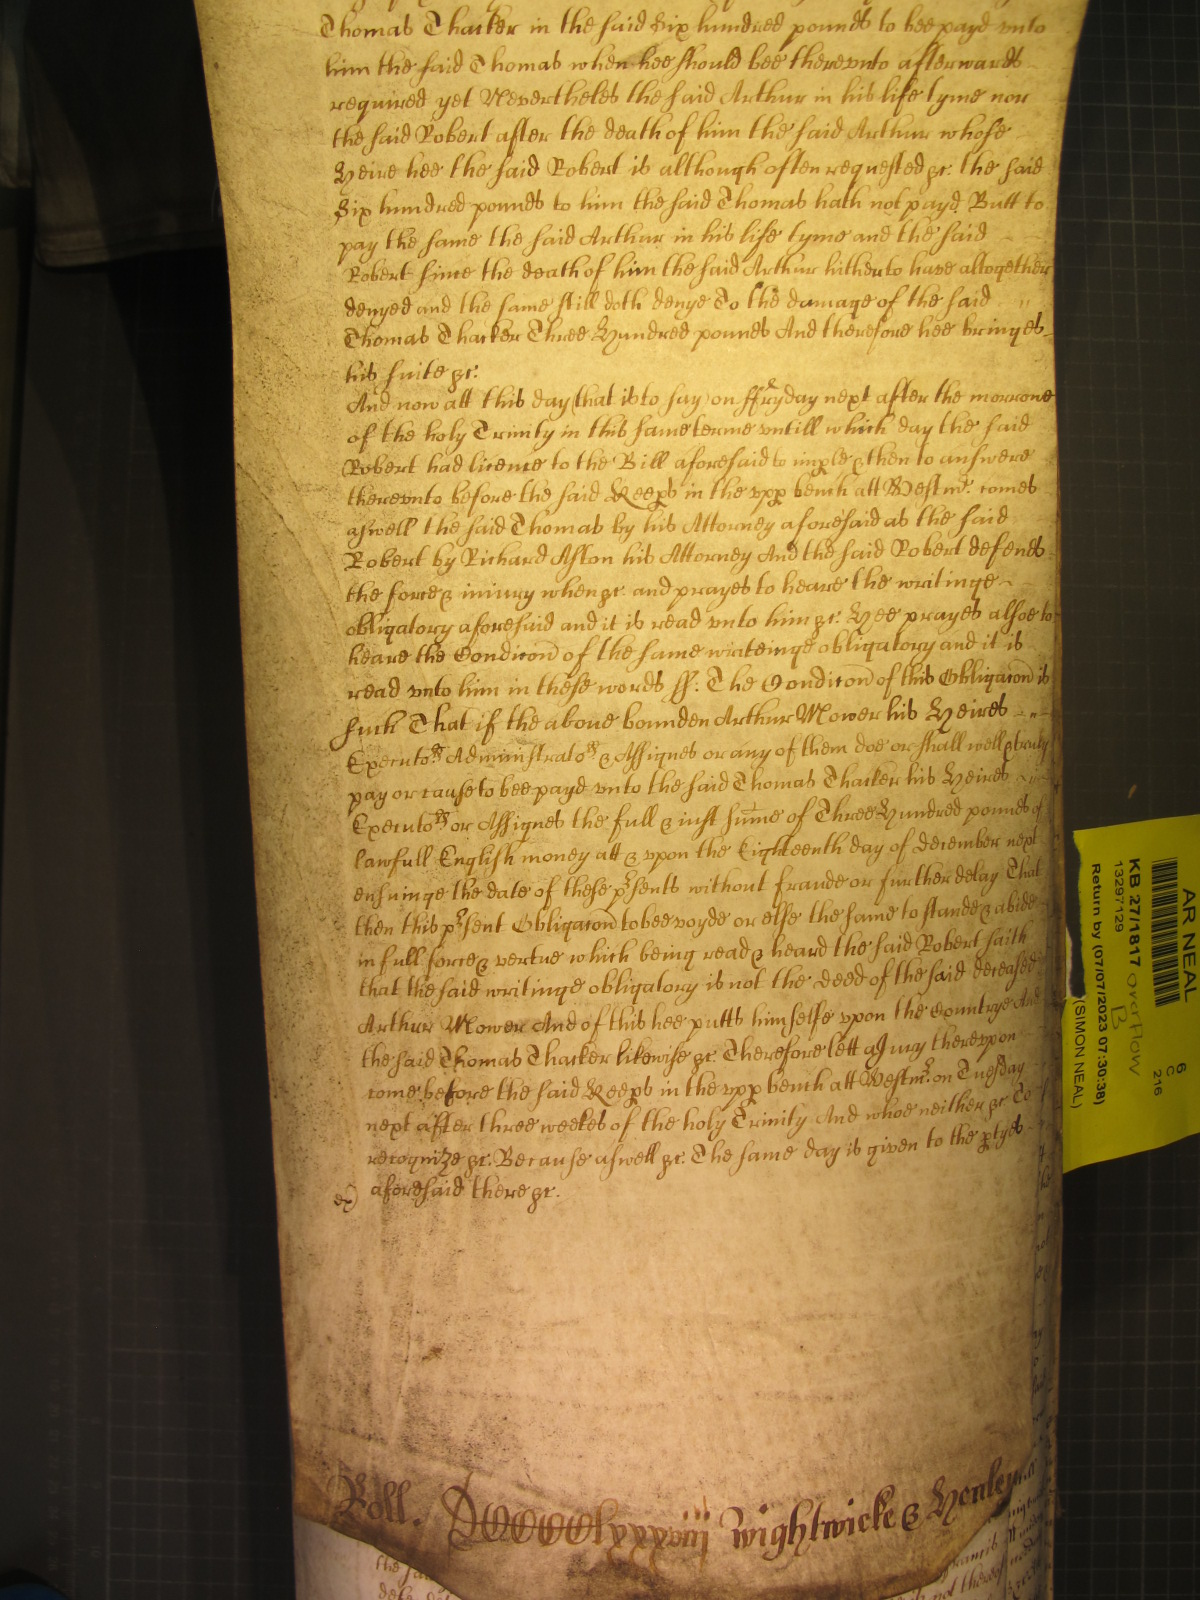 Thomas Thacker in the said Six hundred pounds to bee payd vnto
him the said Thomas when hee should bee therevnto afterwards
required yet Nevertheles the said Arthur in his life tyme nor
the said Robert after the death of him the said Arthur whose
Heire hee the said Robert is although often requested &c. the said
Six hundred pounds to him the said Thomas hath not payd Butt to
pay the same the said Arthur in his life tyme and the said
Robert since the death of him the said Arthur hitherto have altogether
denyed and the same still doth denye To the damage of the said
Thomas Thacker Three Hundred pounds And therefore hee bringes
his suite &c.
And now att this day (that is to say) on ffryday next after the morrowe
of the holy Trinity in this same terme vntill which day the said
Robert had licence to the Bill aforesaid to imple & then to answere
therevnto before the said Keeps in the vpp bench att Westmr. comes
aswell the said Thomas by his Attorney aforesaid as the said
Robert by Richard Aston his Attorney And the said Robert defends
the force & iniury when &c. and prayes to heare the writinge
obligatory aforesaid and it is read vnto him &c. Hee prayes alsoe to
heare the Condicon of the same writeinge obligatory and it is
read vnto him in these words ss: The Condicon of this Obligacon is
such That if the above bounden Arthur Mower his Heires
Executors Administrators & Assignes or any of them doe or shall well & truly
pay or cause to bee payd vnto the said Thomas Thacker his Heires
Executors or Assignes the full & iust sume of Three Hundred pounds of
lawfull English money att & vpon the Eighteenth day of december next
ensuinge the date of these psents without fraude or further delay That
then this psent Obligacon to bee voyde or else the same to stande & abide
in full force & vertue which being read & heard the said Robert saith
that the said writinge obligatory is not the deed of the said deceased
Arthur Mower And of this hee putts himselfe vpon the Countrye And
the said Thomas Thacker likewise &c. Therefore lett a Jury therevpon
come before the said Keeps in the vpp bench att Westmr. on Tuesday
next after three weekes of the holy Trinity And whoe neither &c. To
recognize &c. Because aswell &c. The same day is given to the ptyes
aforesaid there &c.
ex)
Roll. Wightwicke & Henley
AR NEAL
6
C
216
KB 27/1817 overflow
B
13297129
Return by (07/07/2023 07:30:38)
(SIMON NEAL)